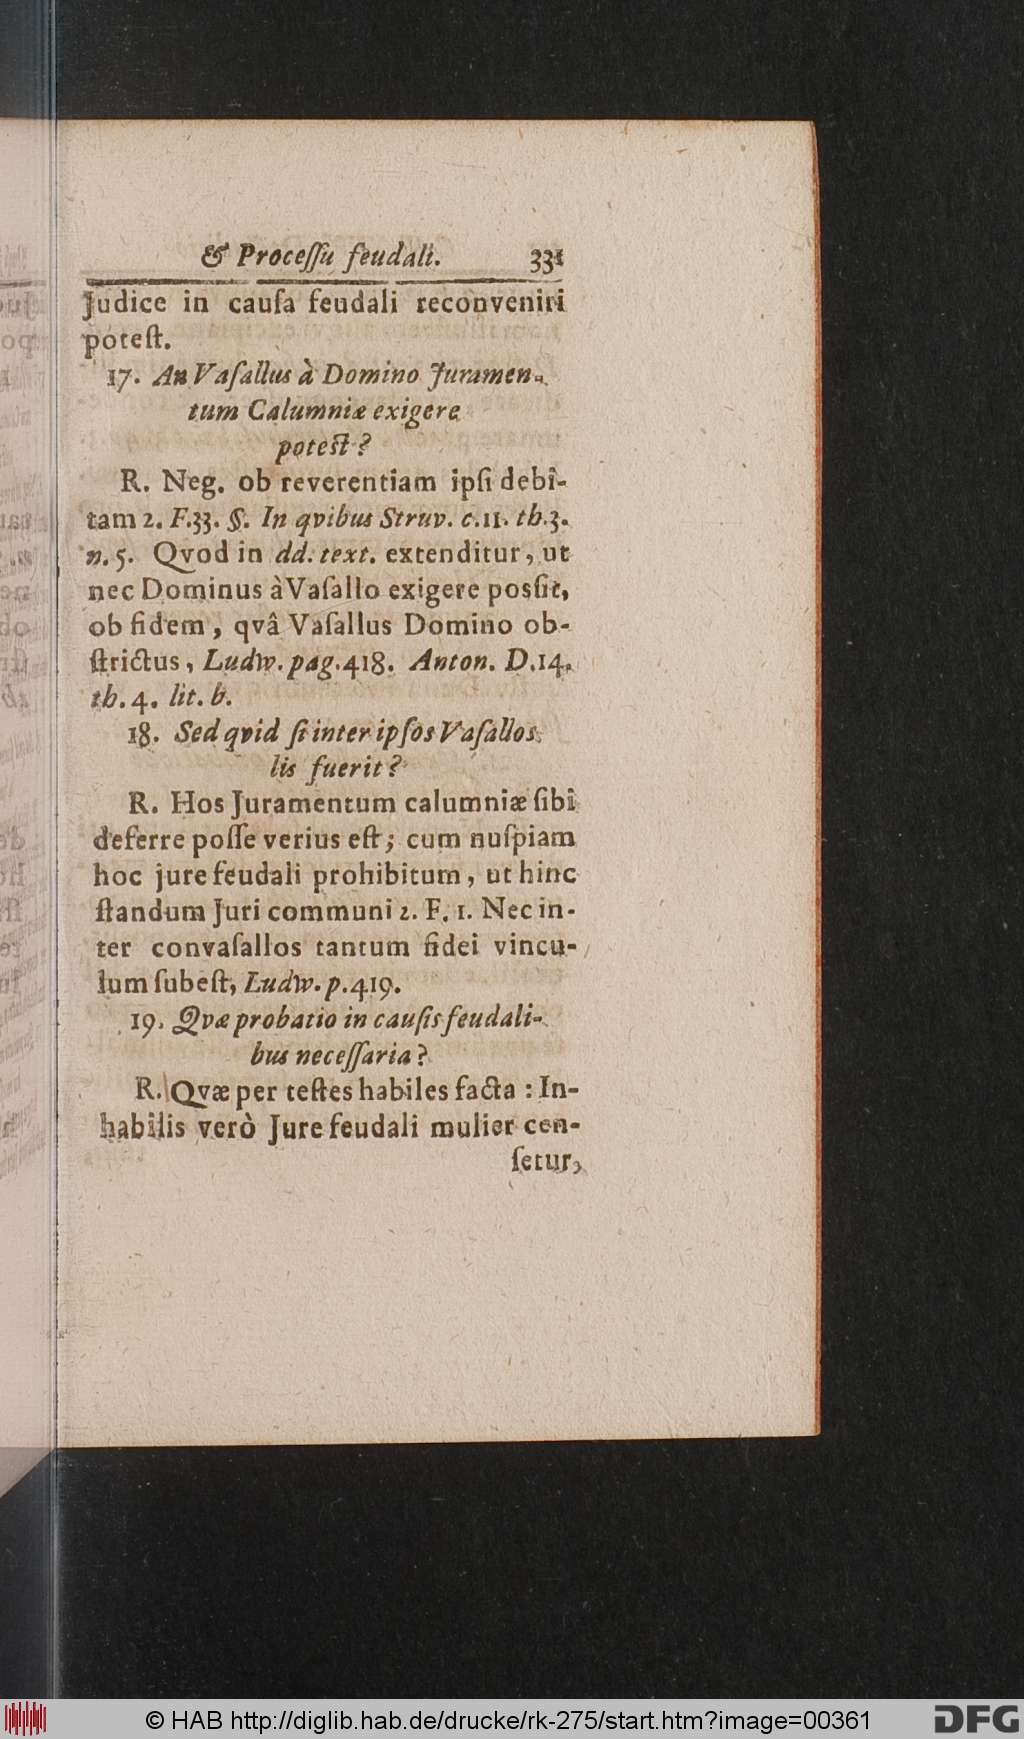 & Proceſſu feudali. 331
Judice in cauſa feudali reconveniri
poteſt.
17. An Vaſallus à Domino Juramen-
tum Calumniæ exigere
poteſt?
R. Neg. ob reverentiam ipſi debi-
tam 2. F. 33. §. In qvibus Struv. c. 11. th. 3.
n. 5. Qvod in dd. text. extenditur, ut
nec Dominus à Vaſallo exigere posſit,
ob fidem, qvâ Vaſallus Domino ob-
ſtrictus, Ludw. pag. 418. Anton. D. 14.
th. 4. lit. b.
18. Sed qvid ſi inter ipſos Vaſallos
lis fuerit?
R. Hos Juramentum calumniæ ſibi
deferre poſſe verius eſt; cum nuſpiam
hoc jure feudali prohibitum, ut hinc
ſtandum Juri communi 2. F. 1. Nec in-
ter convaſallos tantum fidei vincu-
lum ſubeſt, Ludw. p. 419.
19. Qvæ probatio in cauſis feudali-
bus neceſſaria?
R. Qvæ per teſtes habiles facta: In-
habilis verò Jure feudali mulier cen-
ſetur,
© HAB http://diglib.hab.de/drucke/rk-275/start.htm?image=00361
DFG